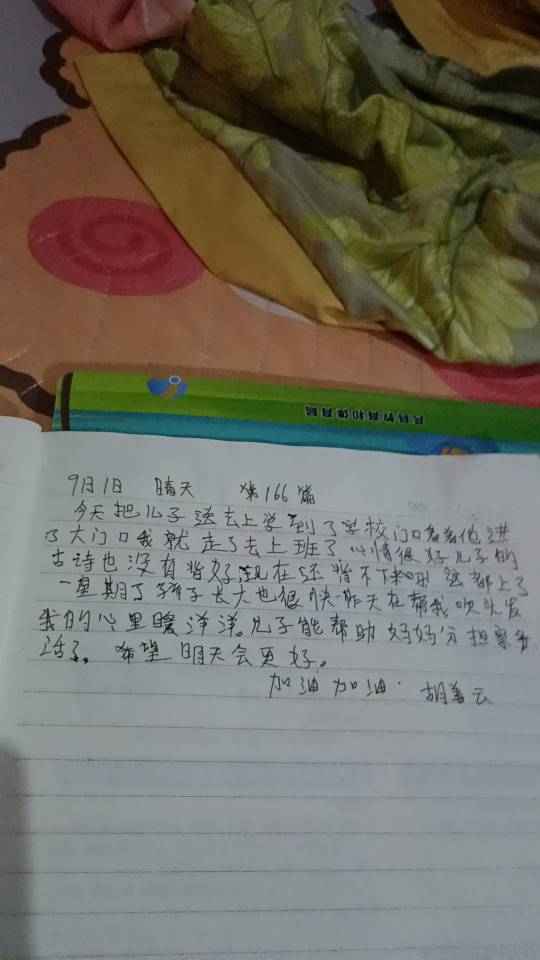 县教育和体育局
9月1日 晴天 第166篇
今天把儿子送去上学到了学校门口看着他进
了大门口我就走了去上班了心情很好儿子的
古诗也没有背好现在还背不下来 这都上了
一星期了孩子长大也很快昨天在帮我吹头发
我的心里暖洋洋。儿子能帮助妈妈分担家务
活了。希望明天会更好。
加油加油. 胡善云